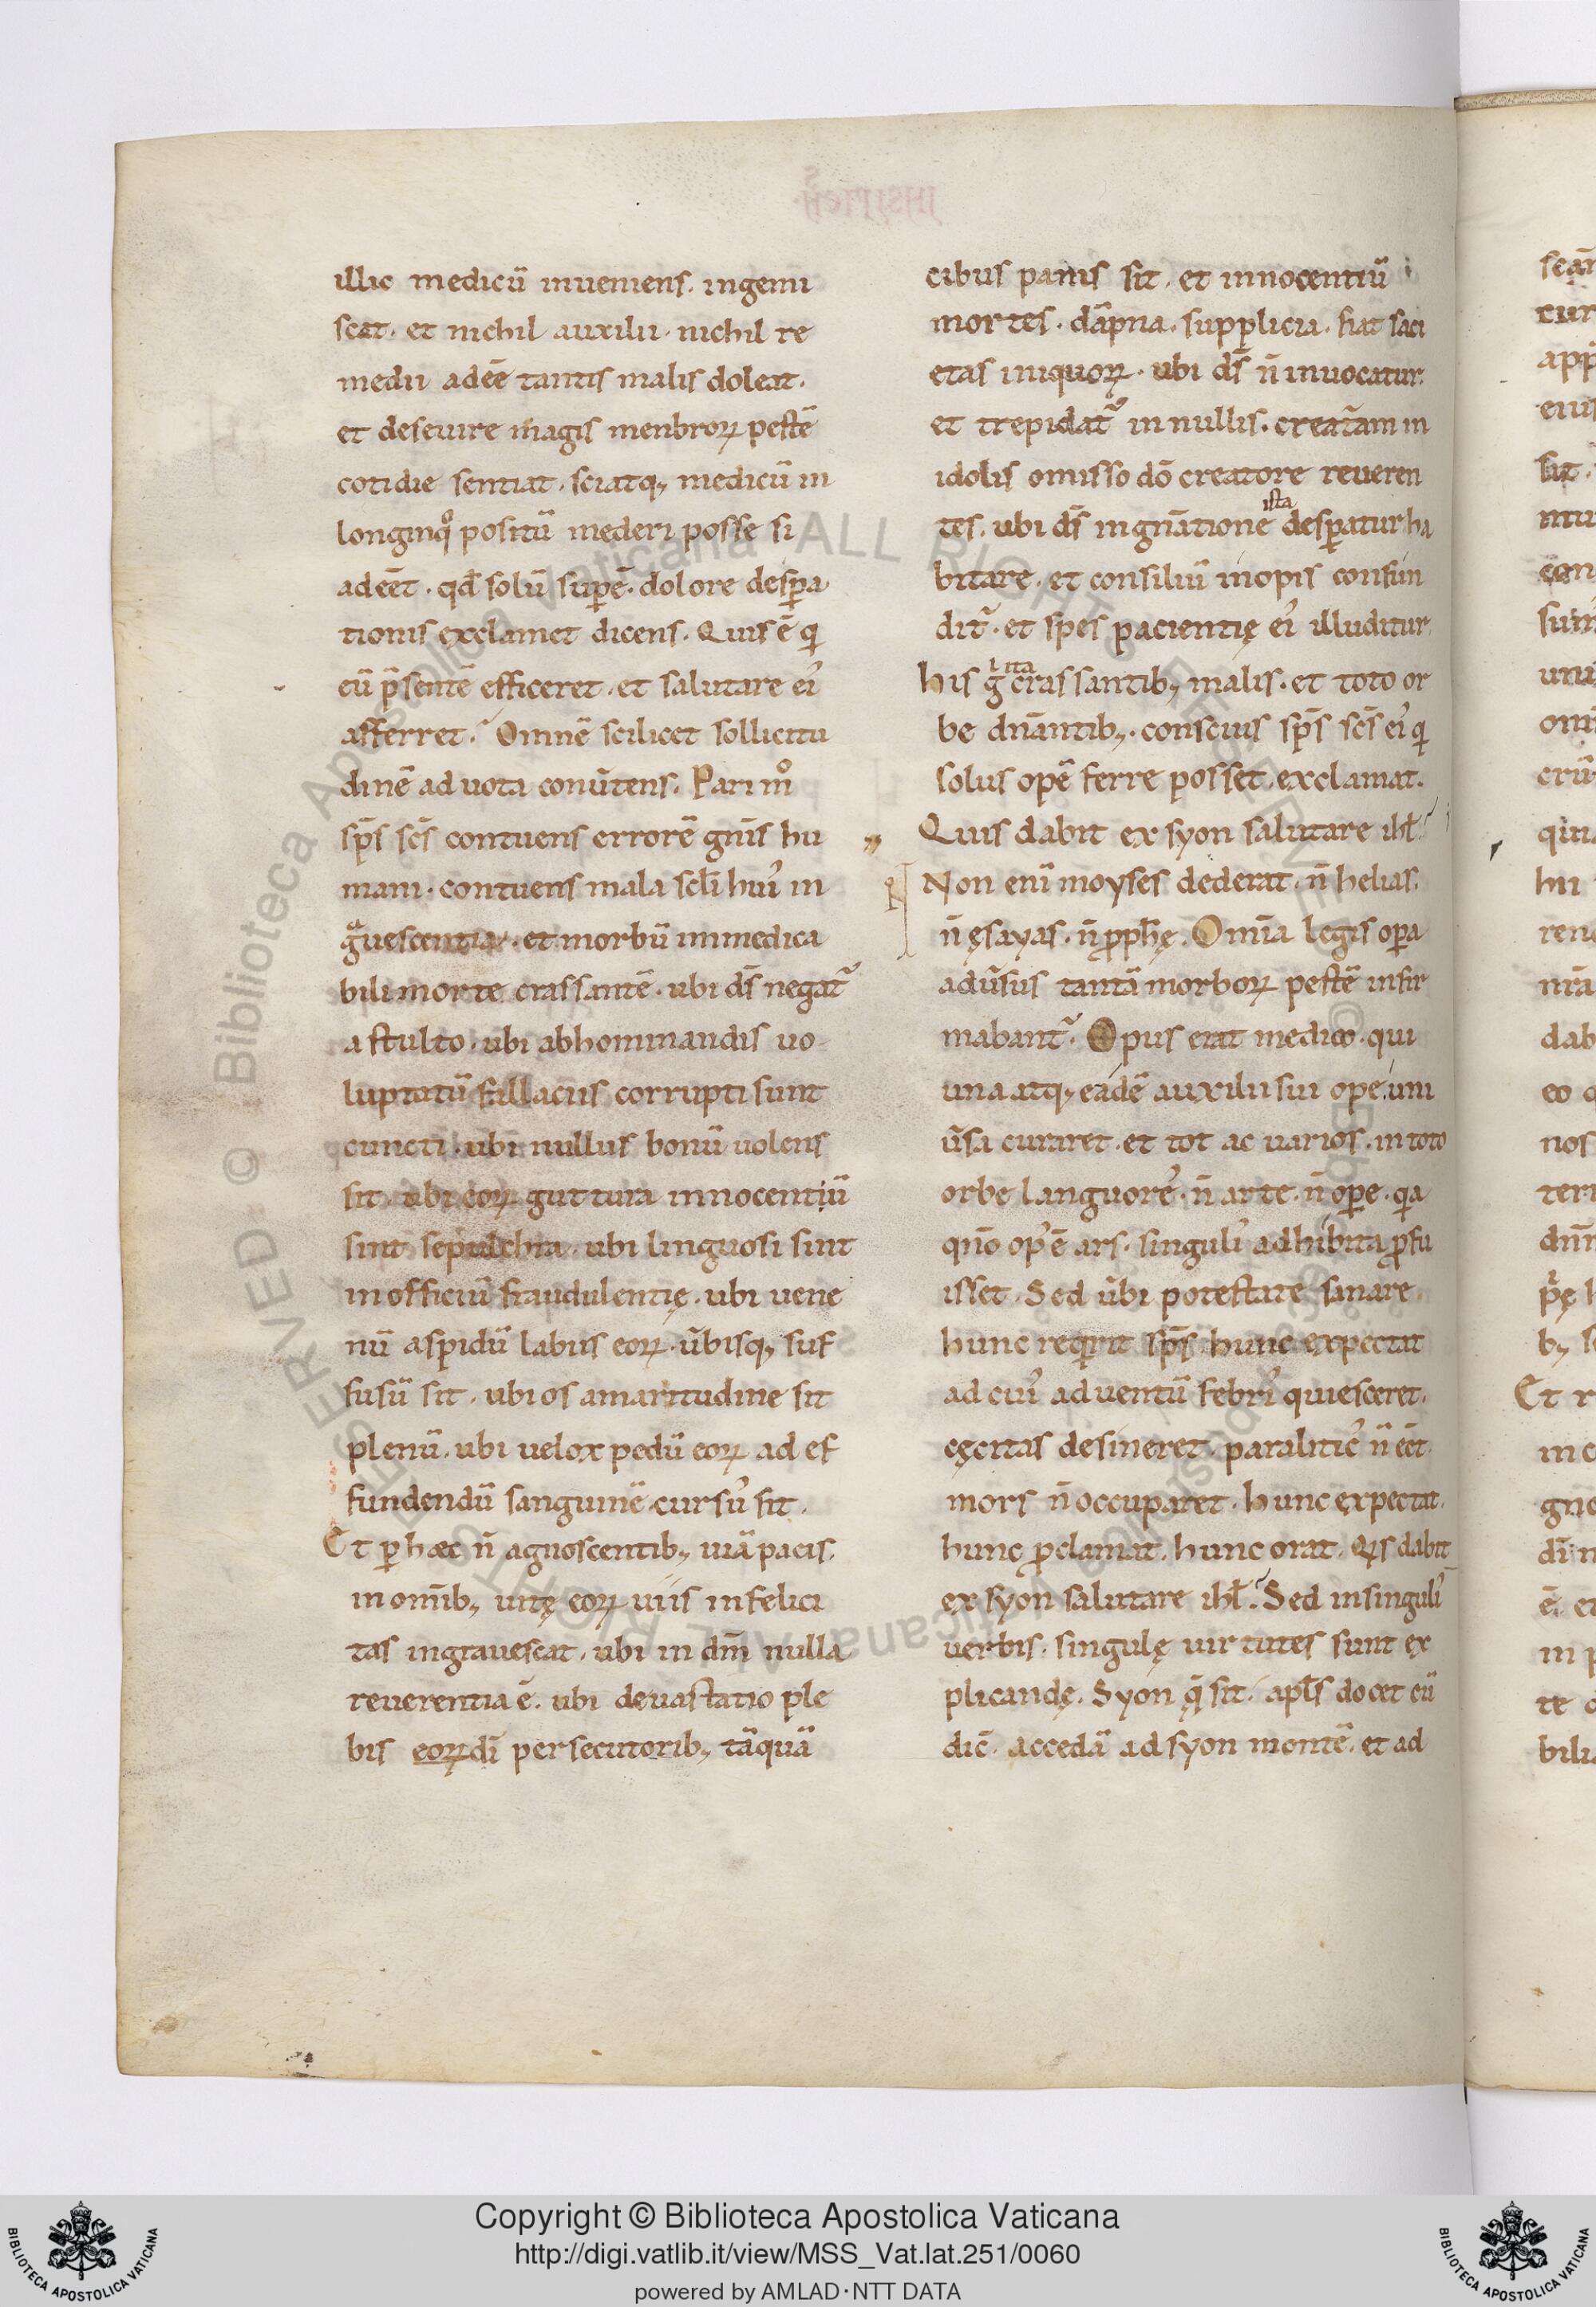 illic medicū inueniens. ingemi
scat. et nichil auxilii. nichil re
medii adeē tantis malis doleat.
et deseuire magis menbroꝝ pestē
cotidie sentiat. sciatq; medicū in
longinqͦ positū mederi posse si
adeēt. qd̄ solū supē. dolore despa
tionis exclamet dicens. Quis ē q
eū p̄sentē efficeret. et salutare ei᾽
afferret. Omnē scilicet sollicitu
dinē ad uota conūtens. Pari mͦ
sps̄ scs̄ contuens errorē gn̄is hu
mani. contuens mala scl̄i hui᾽ in
gͣuescentia. et morbū immedica
bili morte crassantē. ubi ds̄ negat᷑
a stulto. ubi abhominandis uo
luptatū fallaciis corrupti sunt
cuncti. ubi nullus bonū uolens
sit. ubi eoꝝ guttura innocentiū
sint sepulchra. ubi linguosi sint
in officiū fraudulentię. ubi uene
nū aspidū labiis eoꝝ. ūbisq; suf
fusū sit. ubi os amaritudine sit
plenū. ubi uelox pedū eoꝝ ad ef
fundendū sanguinē cursu᾽ sit.
Et ꝑ hæc n̄ agnoscentib; uiā pacis.
in omīb; uitę eoꝝ uiis infelici
tas ingrauescat. ubi in dm̄ nulla
reuerentia ē. ubi deuastatio ple
bis eoꝝ di᷑ persecutorib; tāquā
cibus panis sit. et innocentiū
mortes. dāpna. supplicia. fiat saci
etas iniquoꝝ. ubi ds̄ n̄ inuocatur.
et trepidat᷑ in nullis. creat̄am in
idolis omisso dō creatore reueren
tes. ubi ds̄ in gn̄atione ista desꝑatur ha
bitare. et consiliū inopis confun
dit᷑. et spes pacientię ei᾽ illuditur.
his gͥ ita crassantib; malis. et toto or
be dn̄antib;. conscius sps̄ scs̄ ei᾽ q
solus opē ferre posset. exclamat.
Quis dabit ex syon salutare ihl̄.
Non eni᷑ moyses dederat. n̄ helias.
n̄ ęsayas. n̄ ꝓpħę. Omīa legis oꝑa
adūsus tantā morboꝝ pestē infir
mabant᷑. Opus erat medico. qui
una atq; eadē auxilii sui ope. uni
ūsa curaret. et tot ac uarios. in toto
orbe languore᾽. n̄ arte. n̄ oꝑe. qa
qn̄o op᾽ ē ars. singuli᾽ adhibita ꝓfu
isset. Sed ūbi potestate sanare.
hunc reqͥrit sps̄. hunc expectat
ad cui᾽ aduentū febri᾽ quiesceret.
cęcitas desineret. paralitic᾽ n̄ eēt.
mors n̄ occuparet. hunc expectat.
hunc ꝓclamat. hunc orat. Qis dabit
ex syon salutare ihl̄. Sed in singuli᾽
uerbis. singulę uirtutes sunt ex
plicandę. Syon q̄ sit. apl̄s docet cū
dic̄. accedā ad syon montē. et ad
Copyright © Biblioteca Apostolica Vaticana
http://digi.vatlib.it/view/MSS_Vat.lat.251/0060
powered by AMLAD·NTT DATA
BIBLIOTECA APOSTOLICA VATICANA
BIBLIOTECA APOSTOLICA VATICANA